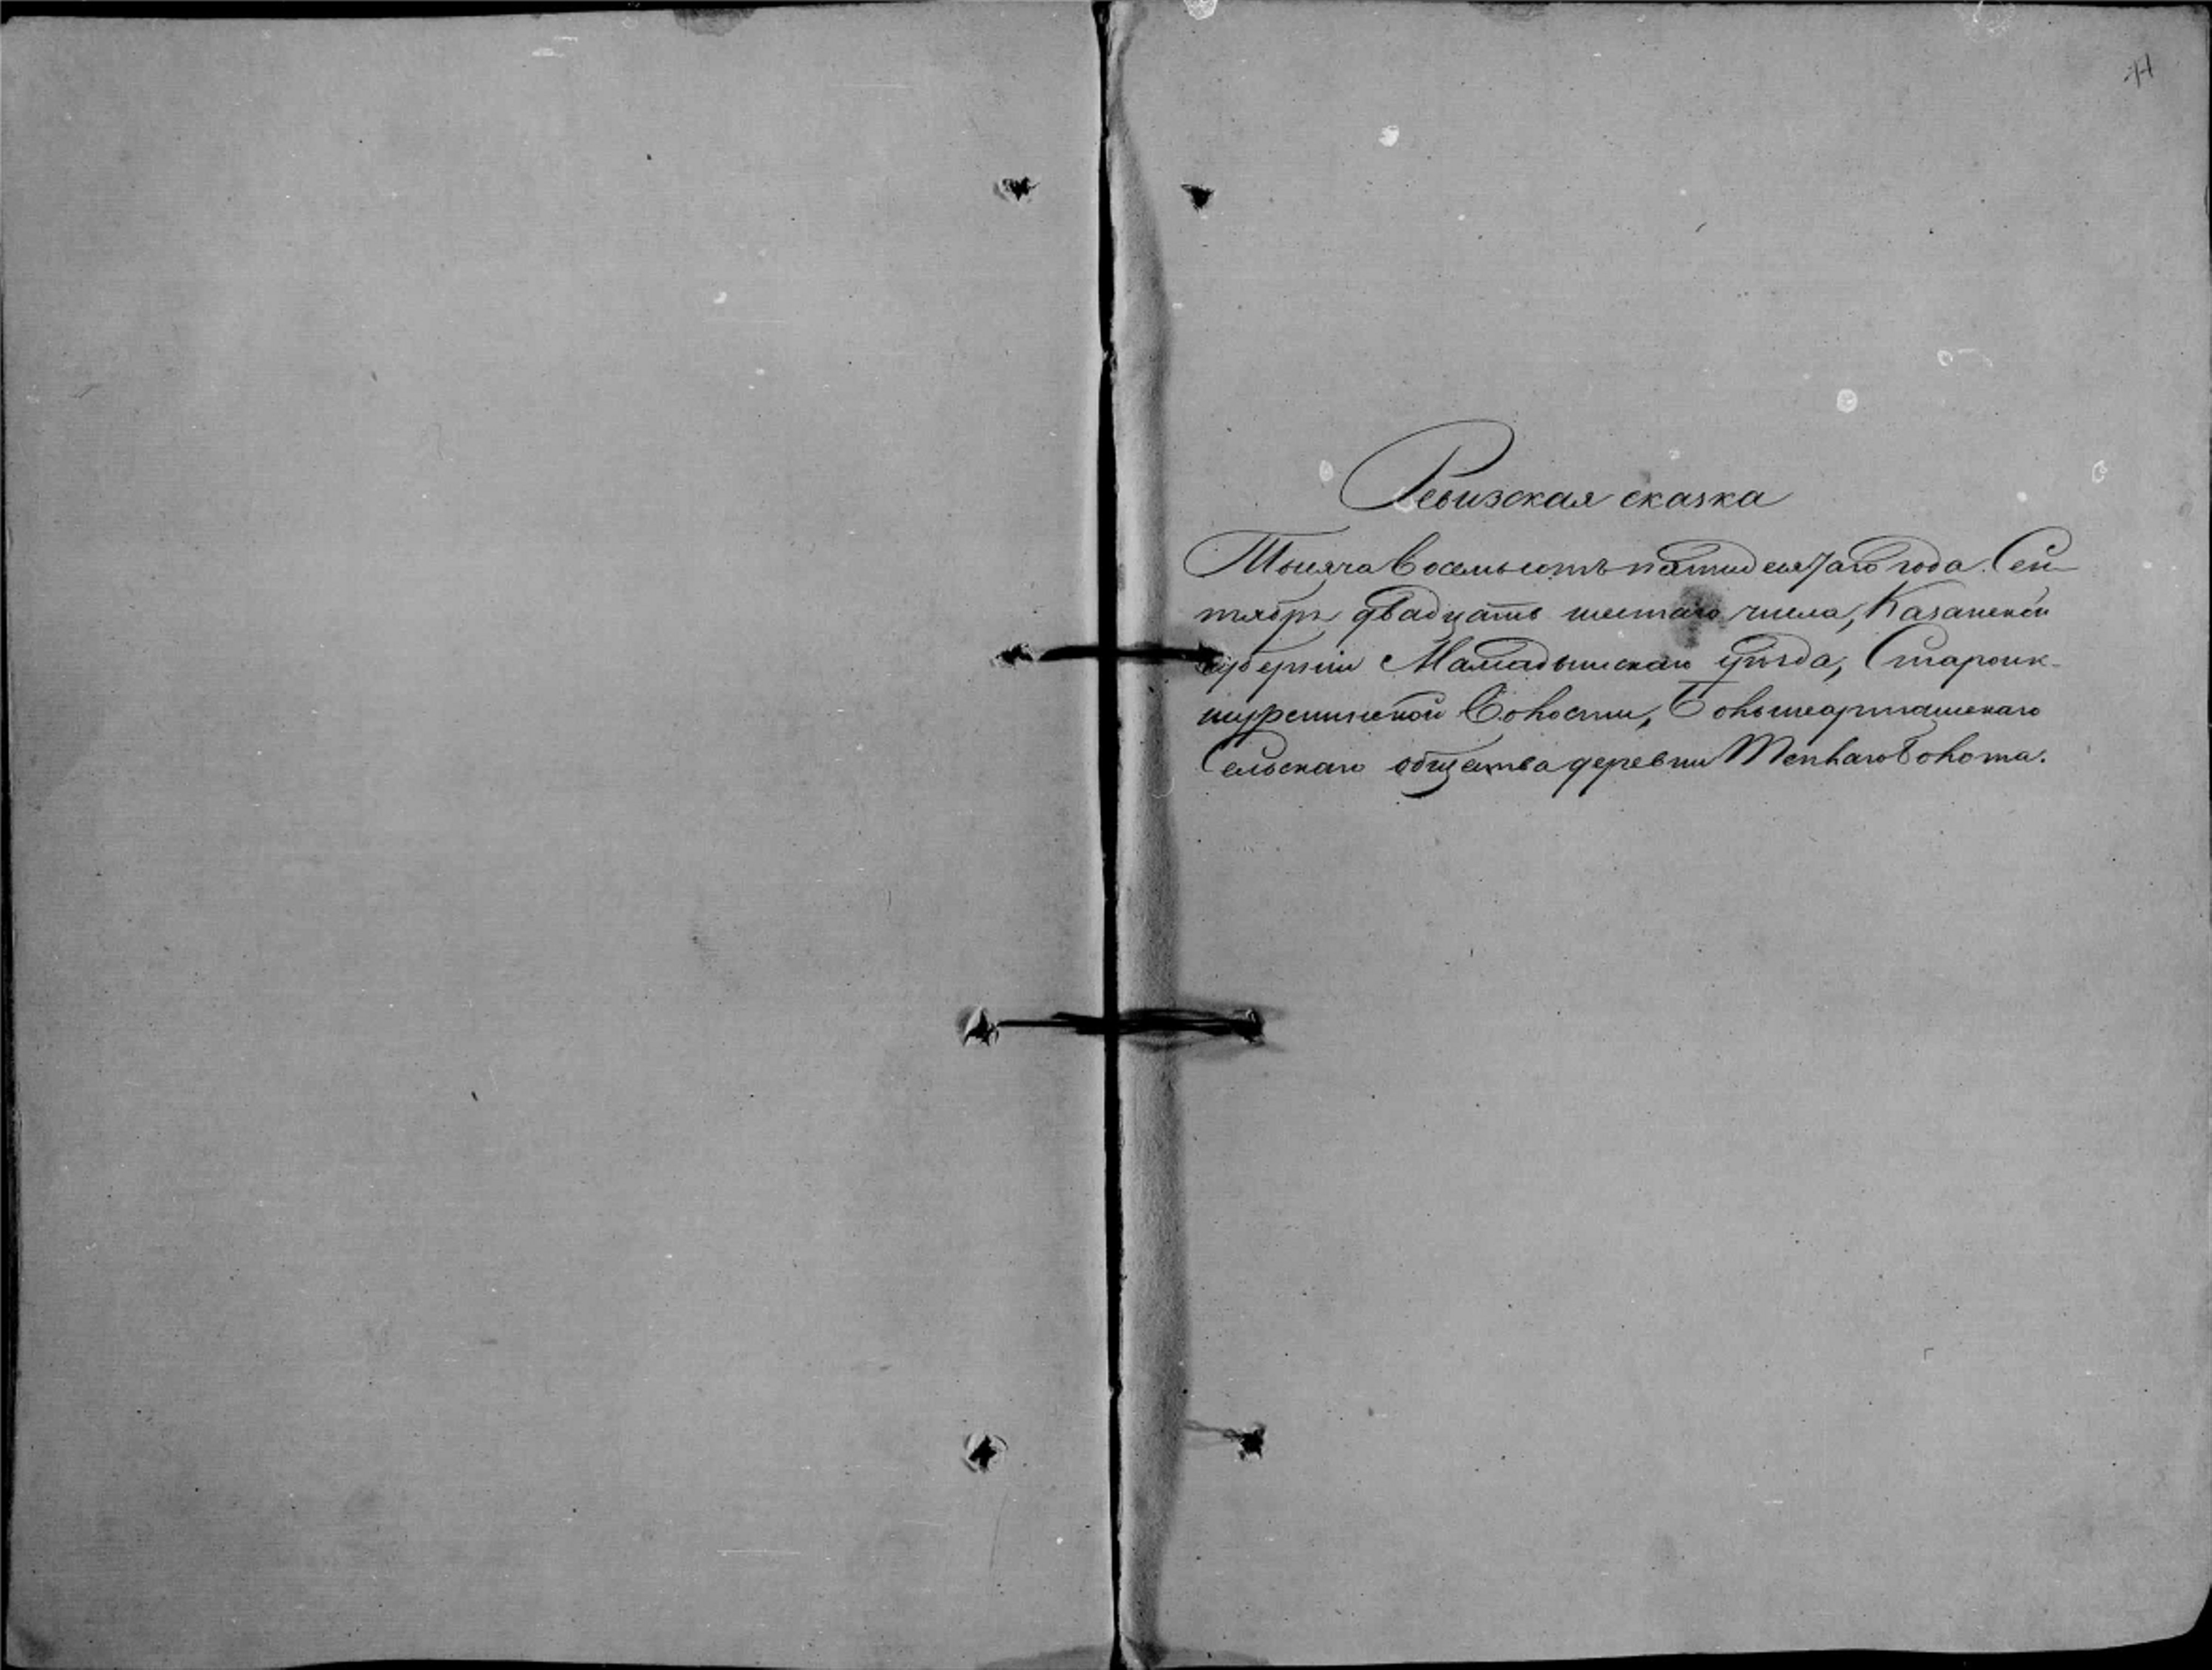 Ревизская сказка
Тысяча восемьсотъ пятидесятаго года Сен-
тября двадцать шестаго числа, Казанской
губерніи Мамадышскаго уѣзда, Староик-
шурминской Волости, Большеарташскаго
Сельскаго общества деревни Теплаго болота.